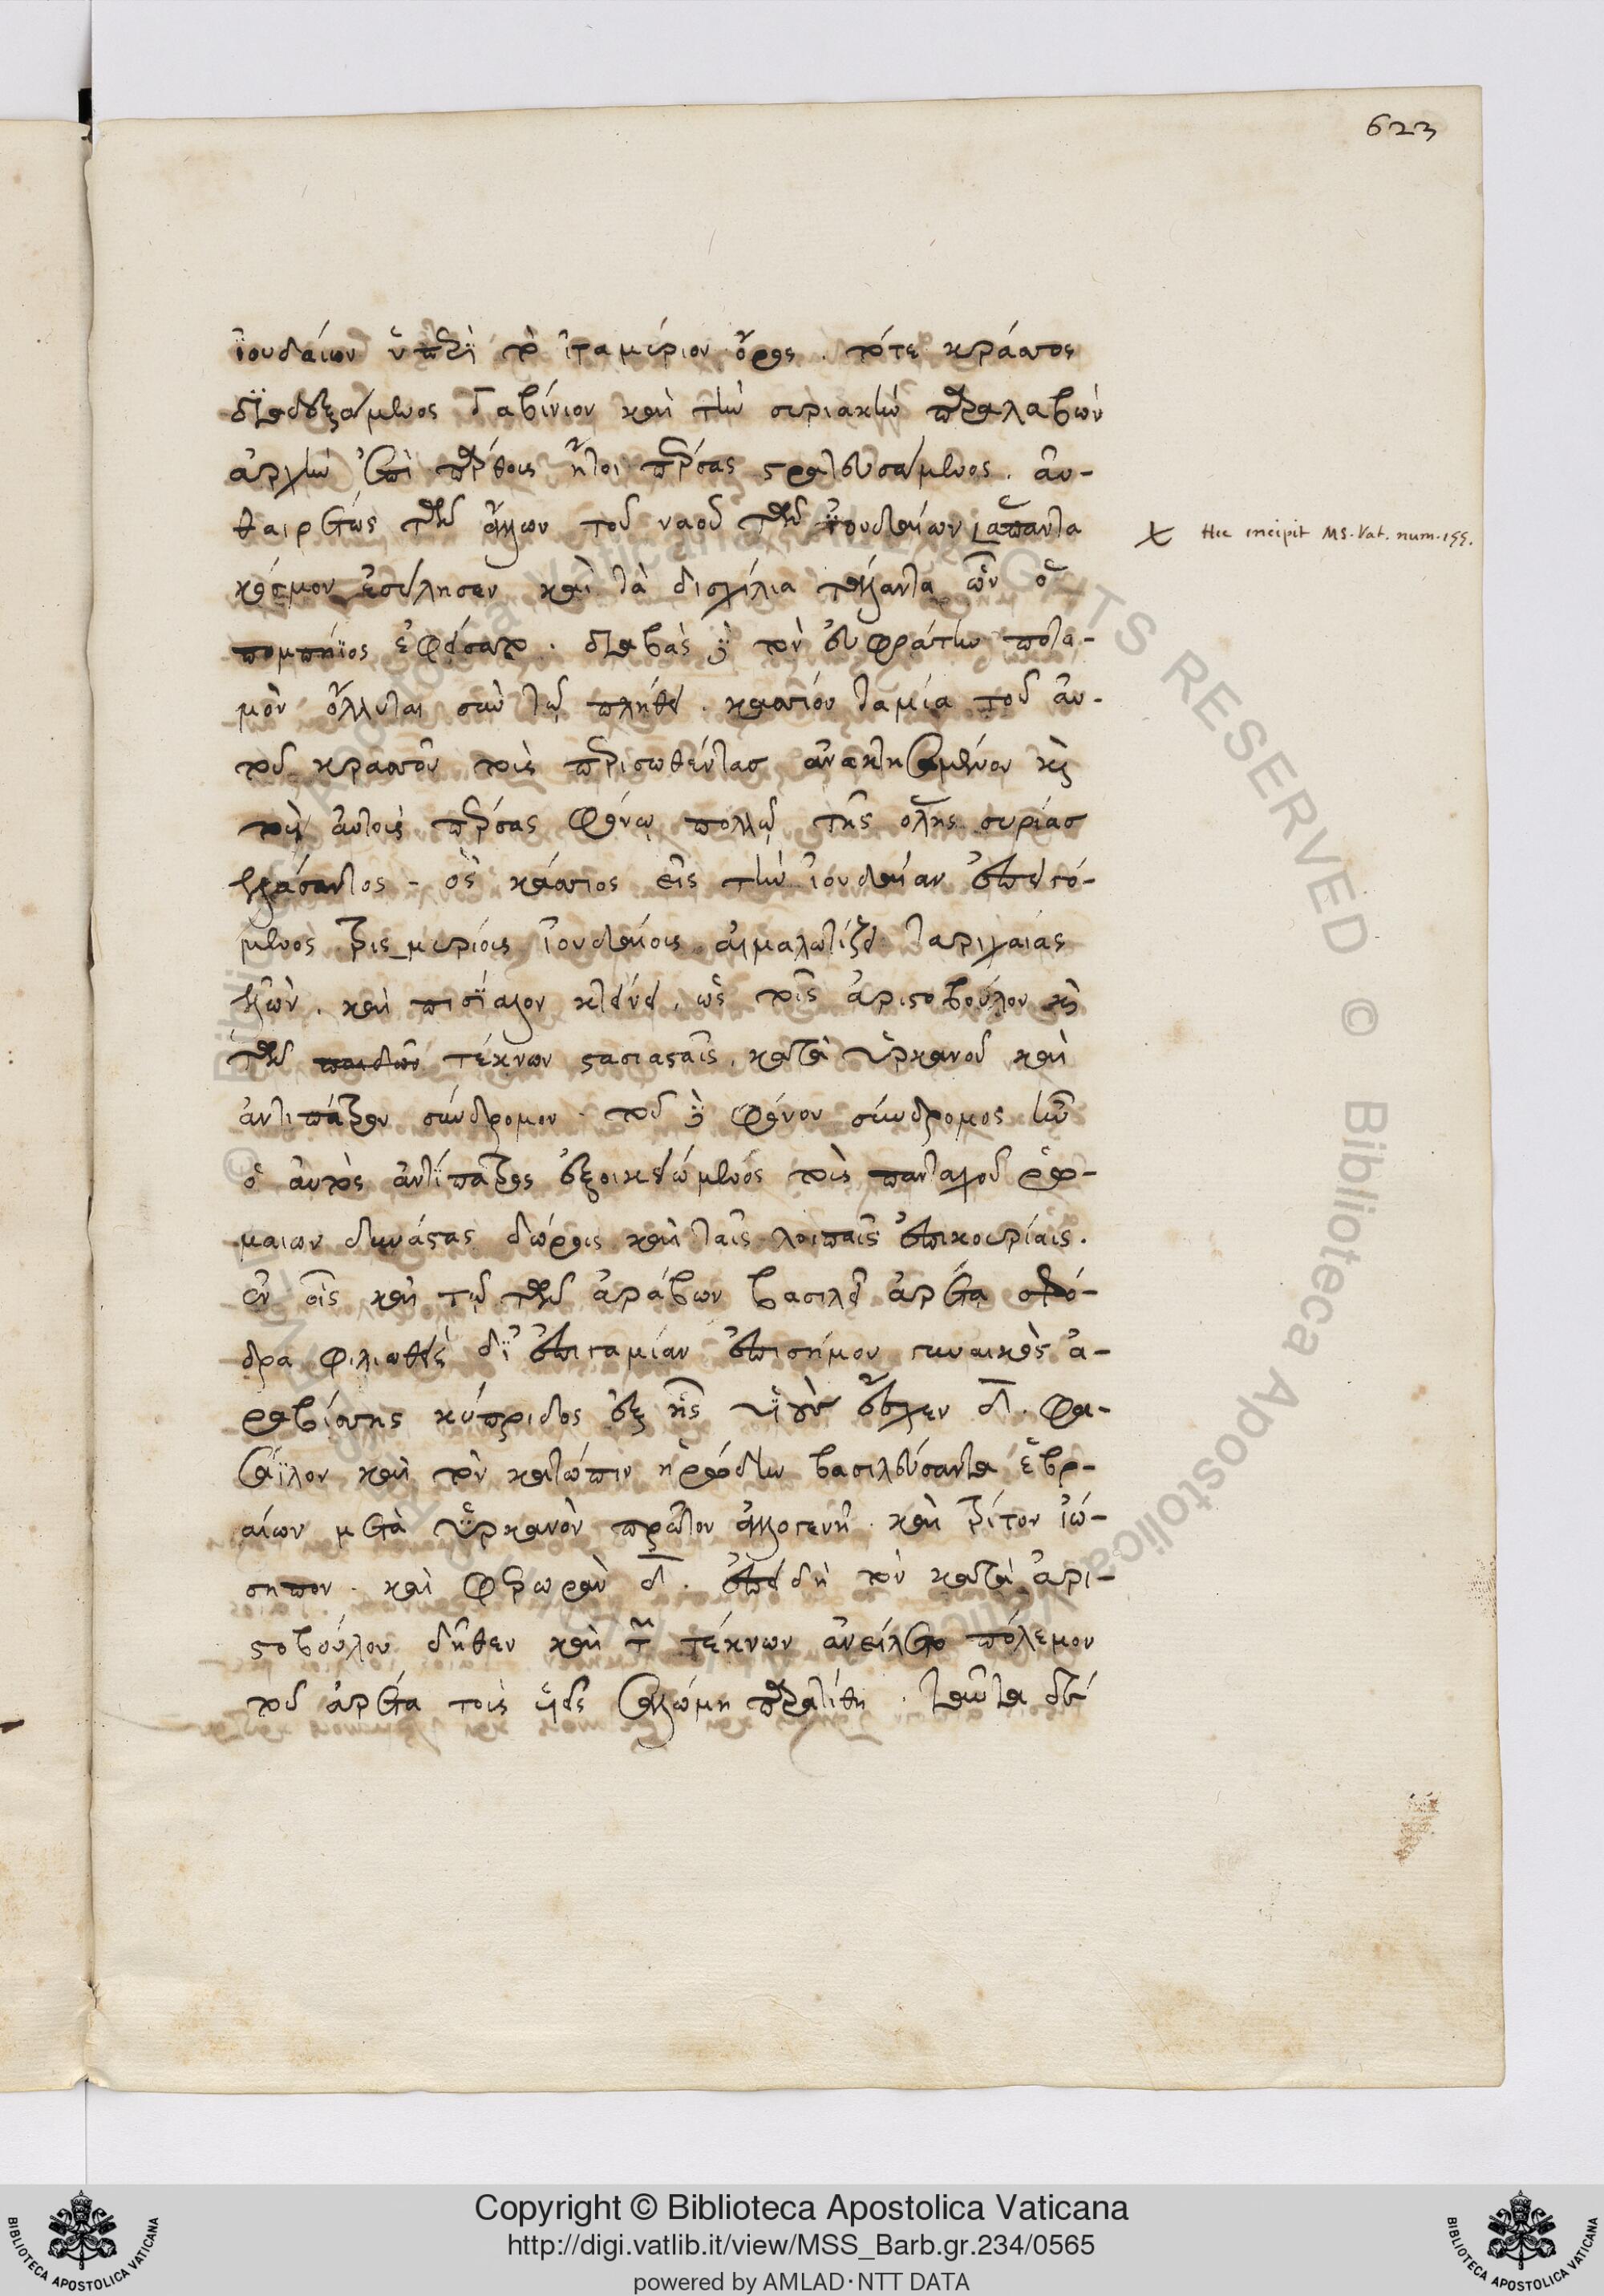 623
ἰουδαίων ὑπὲρ τὸ ἰταμύριον ὄρος. τότε κράσσος
διαδεξάμενος γαβίνιον καὶ τὴν συριακὴν παραλαβὼν
ἀρχὴν ἐπὶ πάρθοις ἤτοι πέρσας στρατευσάμενος. αὐ-
θαιρέτως τῶν ἄλλων τοῦ ναοῦ τῶν ἰουδαίων ἅπαντα
κόσμον ἐσύλησεν καὶ τὰ δισχίλια τάλαντα ὧν ὁ
πομπήϊος ἐφείσατο. διαβὰς δὲ τὸν εὐφράτην ποτα-
μὸν ὄλλυται σὺν τῷ πλήθει. κασσίου ταμία τοῦ αὐ-
τοῦ κράσσου τοὺς περισωθέντας ἀνακτησαμένου καὶ
τοὺς αὐτοὺς πέρσας φόνῳ πολλῷ τῆς ὅλης συρίας
ἐλάσαντος - ὃς κάσσιος εἰς τὴν ἰουδαίαν ἐπειγό-
μενος τρισμυρίους ἰουδαίους αἰχμαλωτίζει ταριχαίας
ἑλών. καὶ πιτόλαον κτείνει, ὡς τοῖς ἀριστοβούλου καὶ
τῶν παιδῶν τέκνων στασιασταῖς, κατὰ ὑρκανοῦ καὶ
ἀντιπάτρου σύνδρομον. τοῦ δὲ φόνου σύνδρομος ἦν
ὁ αὐτὸς ἀντίπατρος ἐξοικειώμενος τοὺς πανταχοῦ ῥω-
μαίων δυνάστας δώροις καὶ ταῖς λοιπαῖς ἐπικουρίαις.
ἐν οἷς καὶ τῷ τῶν ἀράβων βασιλεῖ ἀρέτα σφό-
δρα φιλιωθεὶς δι' ἐπιγαμίαν ἐπισήμου γυναικὸς ἀ-
ραβίσσης κύπριδος ἐξ ἧς υἱοὺς ἔσχεν δ. φα-
σάϊλον καὶ τὸν κατόπιν ἡρώδην βασιλεύσαντα ἑβρ-
αίων μετὰ ὑρκανὸν πρῶτον ἀλλογενῆ. καὶ τρίτον ἰώ-
σηπον. καὶ φερωρὰν δ. ἐπειδὴ τὸν κατὰ ἀρι-
στοβούλου δῆθεν καὶ τῶν τέκνων ἀνείλετο πόλεμον
τοῦ ἀρέτα τοὺς υἱοὺς παρατίθη. ταῦτα
Hic incipit MS. Vat. num. 155.
Copyright © Biblioteca Apostolica Vaticana
http://digi.vatlib.it/view/MSS_Barb.gr.234/0565
powered by AMLAD·NTT DATA